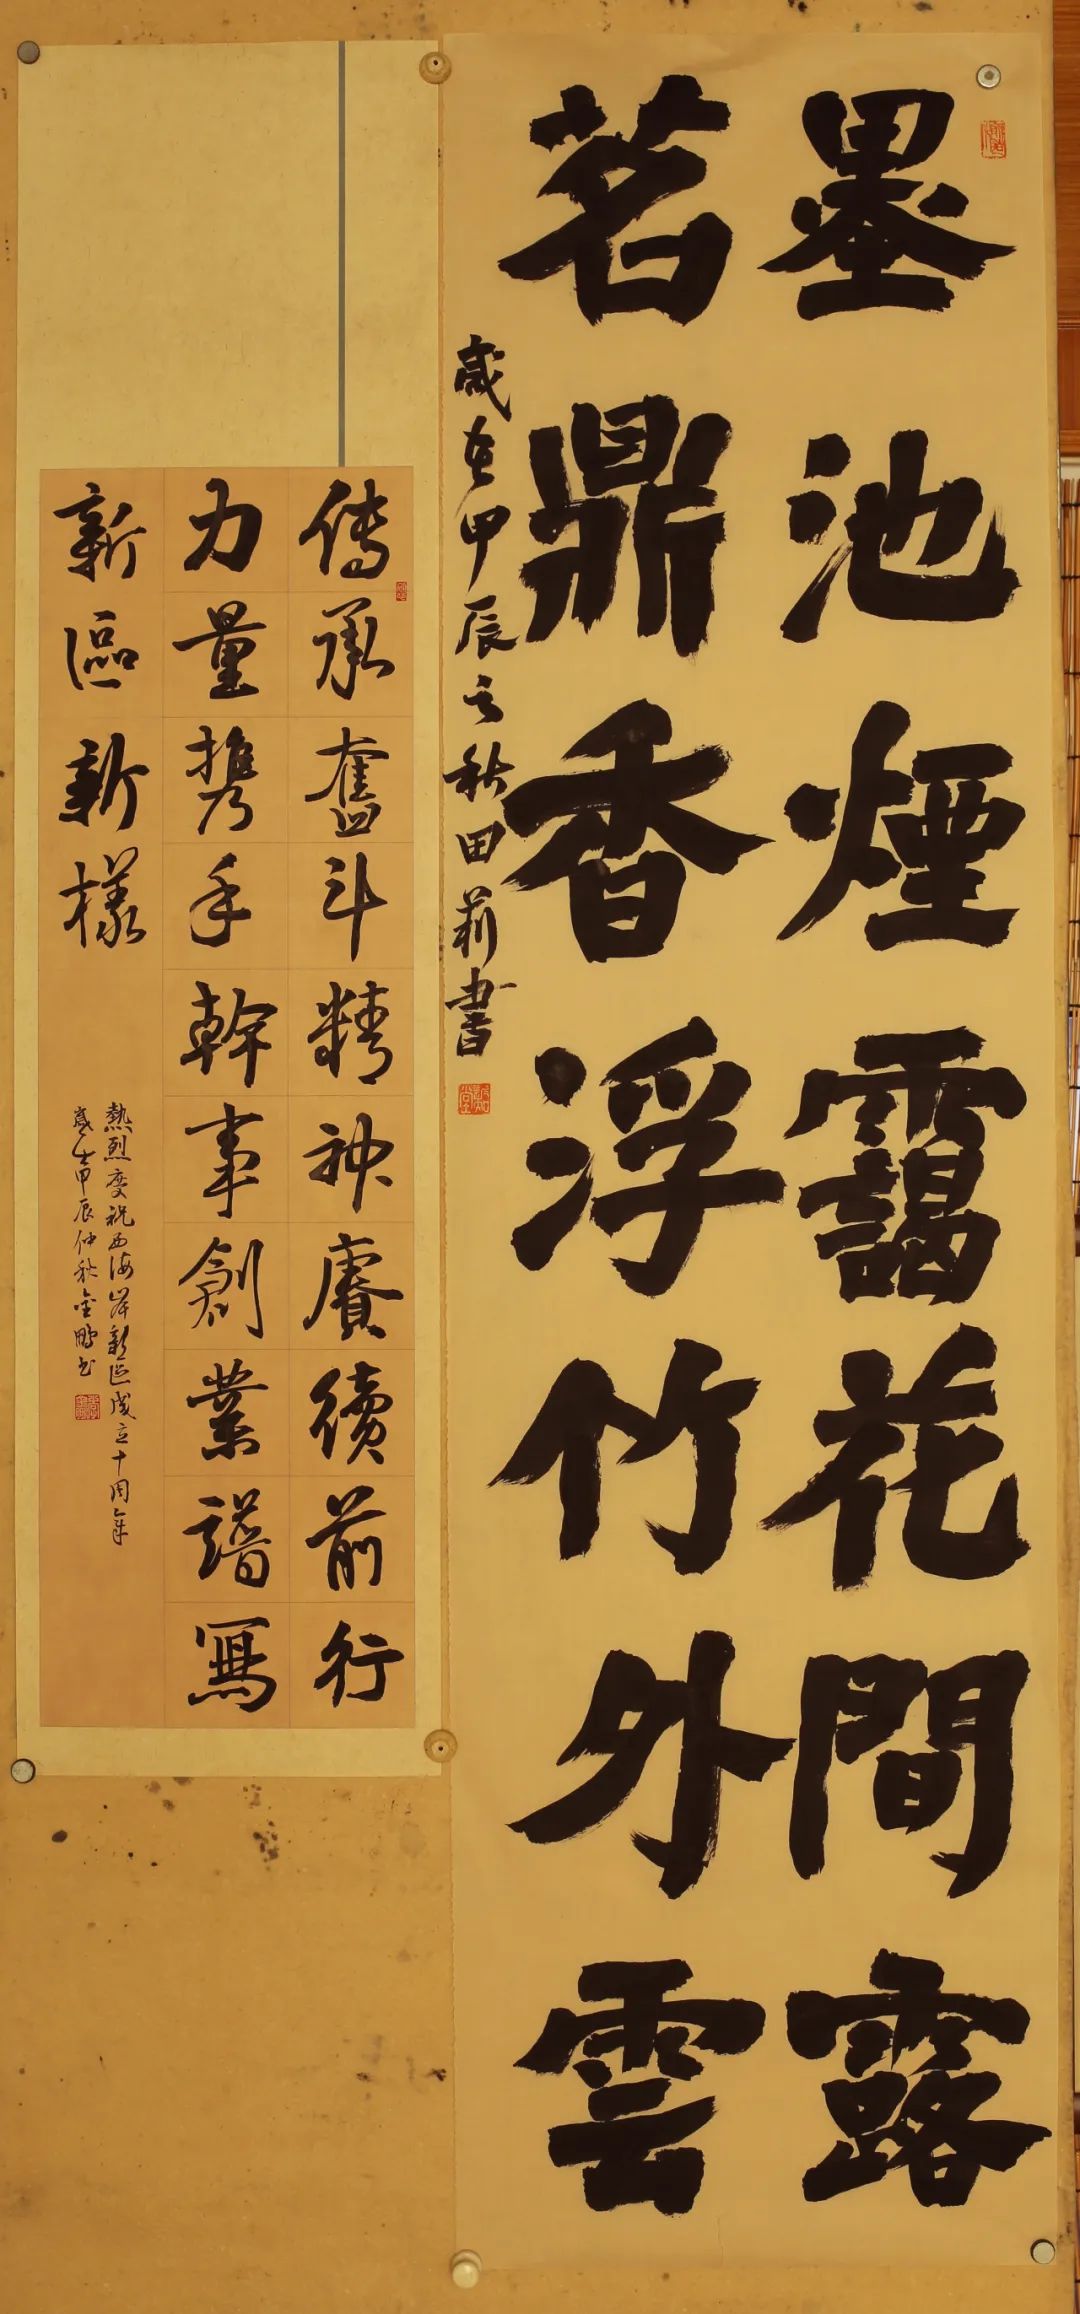 墨池煙靄花間露
茗鼎香浮竹外雲
歲在甲辰之秋田莉書
傳承奮斗精神賡續前行
力量攜手幹事創業譜寫
新區新樣
熱烈慶祝西海岸新區成立十周年
歲在甲辰仲秋金鵬书